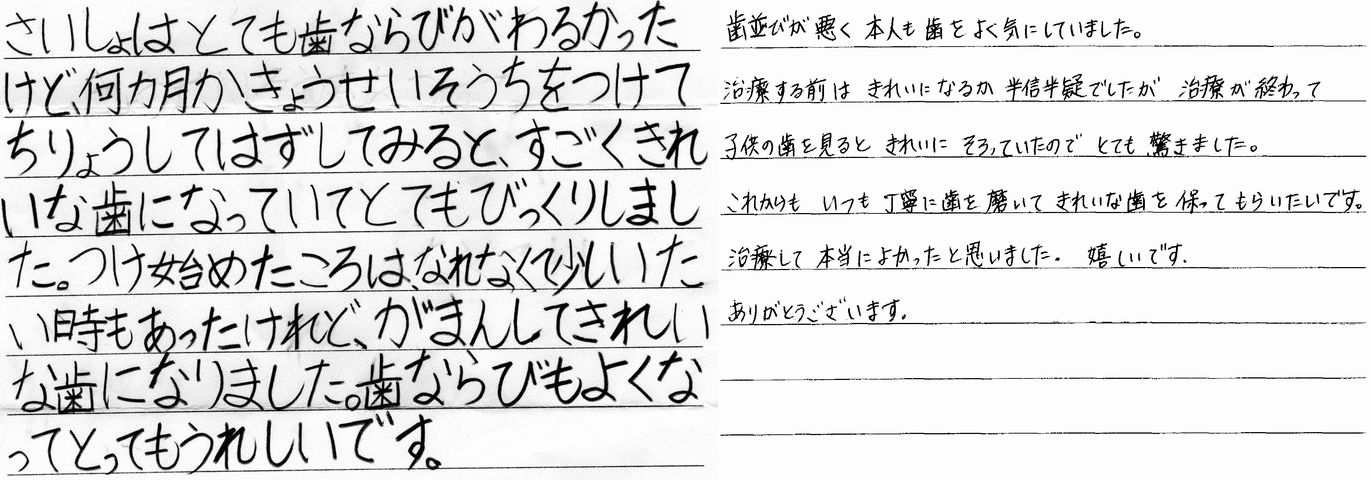 さいしょはとても歯ならびがわるかった
けど、何カ月かきょうせいそうちをつけて
ちりょうしてはずしてみると、すごくきれ
いな歯になっていてとてもびっくりしまし
た。つけ始めたころは、なれなくて少しいた
い時もあったけれど、がまんしてきれい
な歯になりました。歯ならびもよくな
ってとってもうれしいです。
歯並びが悪く 本人も 歯を よく気にしていました。
治療する前は きれいになるか 半信半疑でしたが 治療が終わって
子供の歯を見ると きれいに そろっていたので とても 驚きました。
これからも いつも 丁寧に歯を磨いて きれいな歯を 保ってもらいたいです。
治療して 本当によかったと思いました。 嬉しいです.
ありがとうございます。